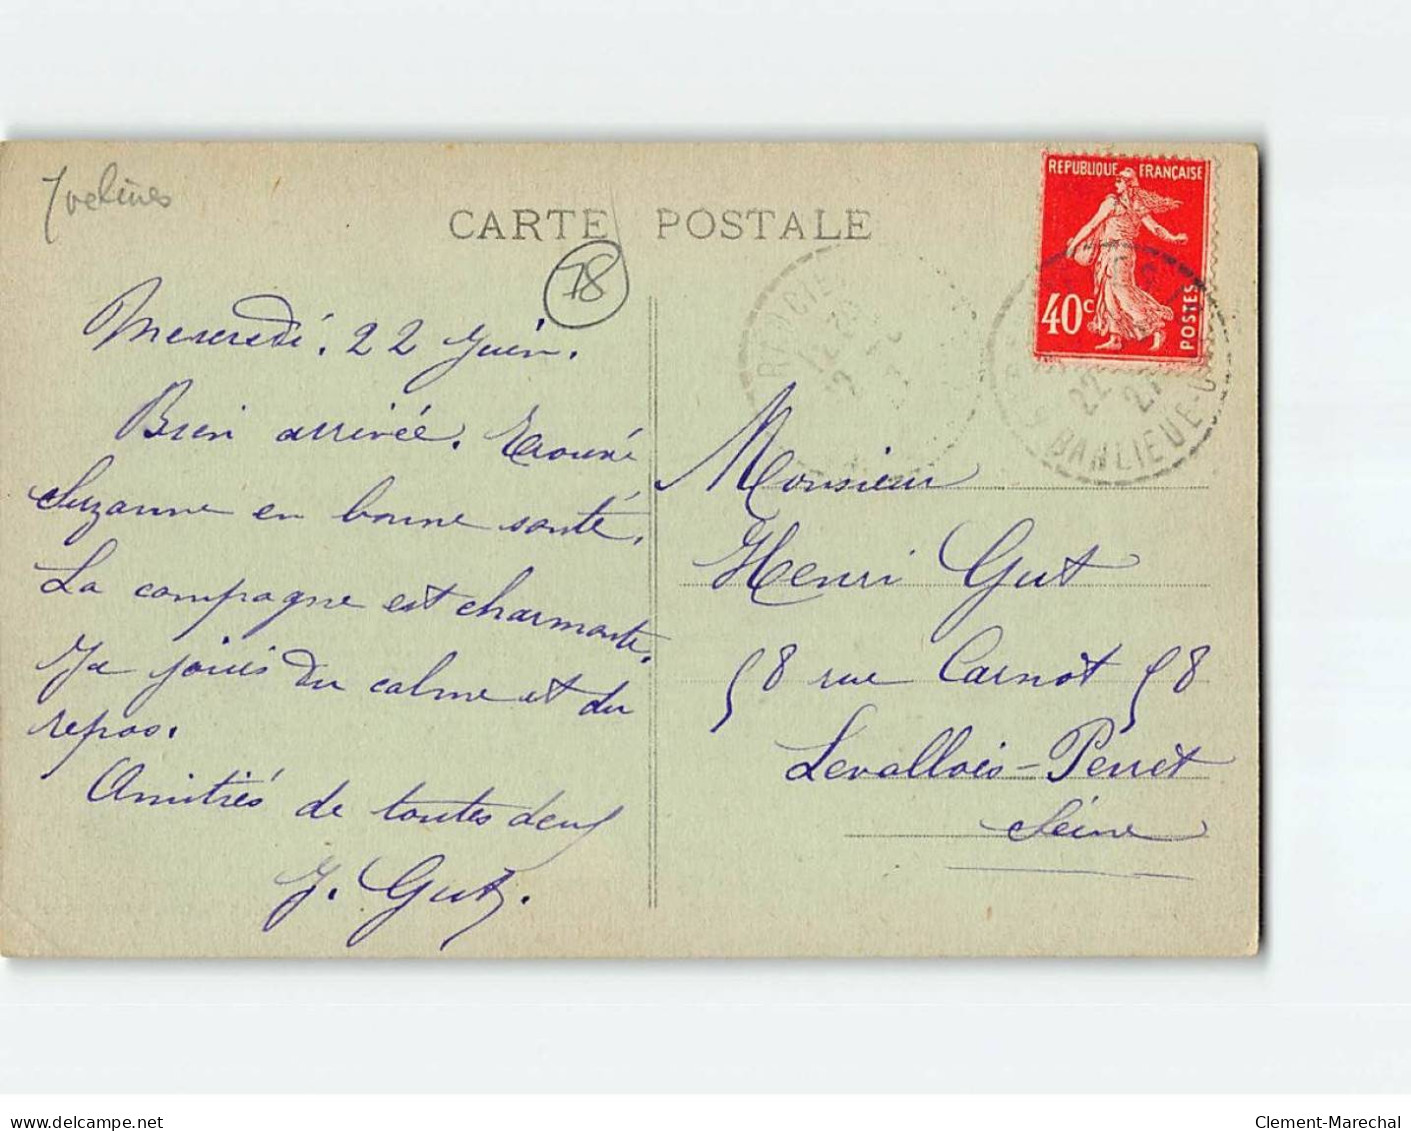 Yvelines
CARTE POSTALE
78
REPUBLIQUE FRANÇAISE
40c
POSTES
22
27
BANLIEUE
Mercredi. 22 Juin.
Bien arrivée. Trouvé
Suzanne en bonne santé.
La campagne est charmante.
Je jouis du calme et du
repos.
Amitiés de toutes deux
J. Gut.
Monsieur
Henri Gut
58 rue Carnot 58
Levallois-Perret
Seine
www.delcampe.net
Clement-Marechal